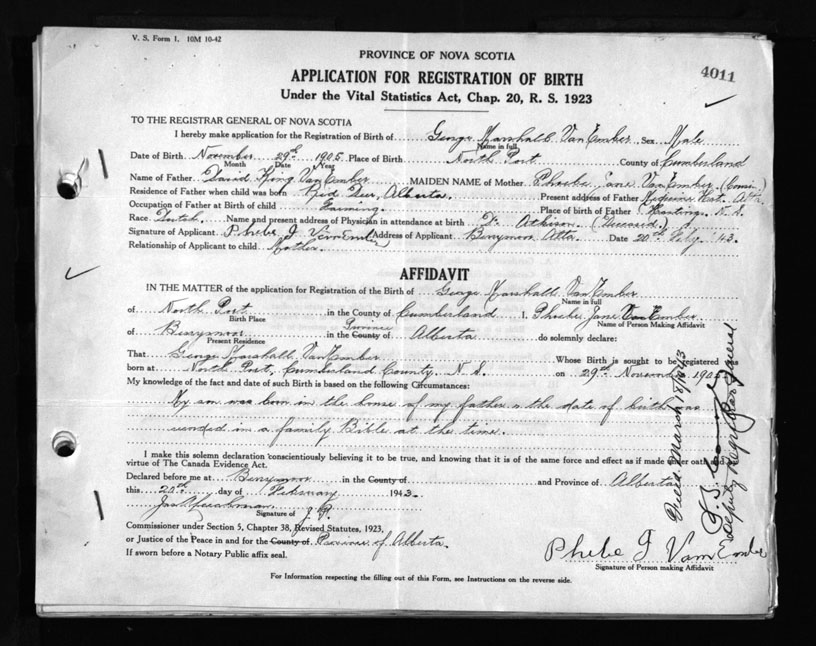 V. S. Form 1. 10M 10-42
PROVINCE OF NOVA SCOTIA
4011
APPLICATION FOR REGISTRATION OF BIRTH
Under the Vital Statistics Act, Chap. 20, R. S. 1923
TO THE REGISTRAR GENERAL OF NOVA SCOTIA
I hereby make application for the Registration of Birth of George Marshall Van Ember Sex Male
Name in full
Date of Birth November 29th 1905 Place of Birth North Port County of Cumberland
Month Date Year
Name of Father David King Van Ember MAIDEN NAME of Mother Phoebe Jane Van Ember
Residence of Father when child was born Red Deer, Alberta. Present address of Father Alta
Occupation of Father at Birth of child Farming. Place of Birth of Father Hastings N. S.
Race Dutch. Name and present address of Physician in attendance at birth Dr Atkison. (Deceased).
Signature of Applicant Phebe J Van Ember Address of Applicant Berrymoor Alta. Date 20th Feby. '43.
Relationship of Applicant to child Mother.
AFFIDAVIT
IN THE MATTER of the application for Registration of the Birth of George Marshall Van Ember
Name in full
of North Port in the County of Cumberland I, Phoebe Jane Van Ember
Birth Place Name of Person Making Affidavit
of Berrymoor in the County of Province Alberta do solemnly declare:
Present Residence
That George Marshall Van Ember Whose Birth is sought to be registered was
born at North Port, Cumberland County, N. S. on 29th November 1905
My knowledge of the fact and date of such Birth is based on the following Circumstances:
My son was born in the house of my father & the date of birth was
recorded in a family Bible at the time.
I make this solemn declaration conscientiously believing it to be true, and knowing that it is of the same force and effect as if made under oath and
virtue of The Canada Evidence Act.
Declared before me at Berrymoor in the County of and Province of Alberta
this 20th day of February 1943.
J. P.
Signature of
Commissioner under Section 5, Chapter 38, Revised Statutes, 1923,
or Justice of the Peace in and for the County of Province of Alberta.
If sworn before a Notary Public affix seal.
Phebe J Van Ember
Signature of Person making Affidavit
For Information respecting the filling out of this Form, see Instructions on the reverse side.
Filed March 18/1943
Deputy Registrar General